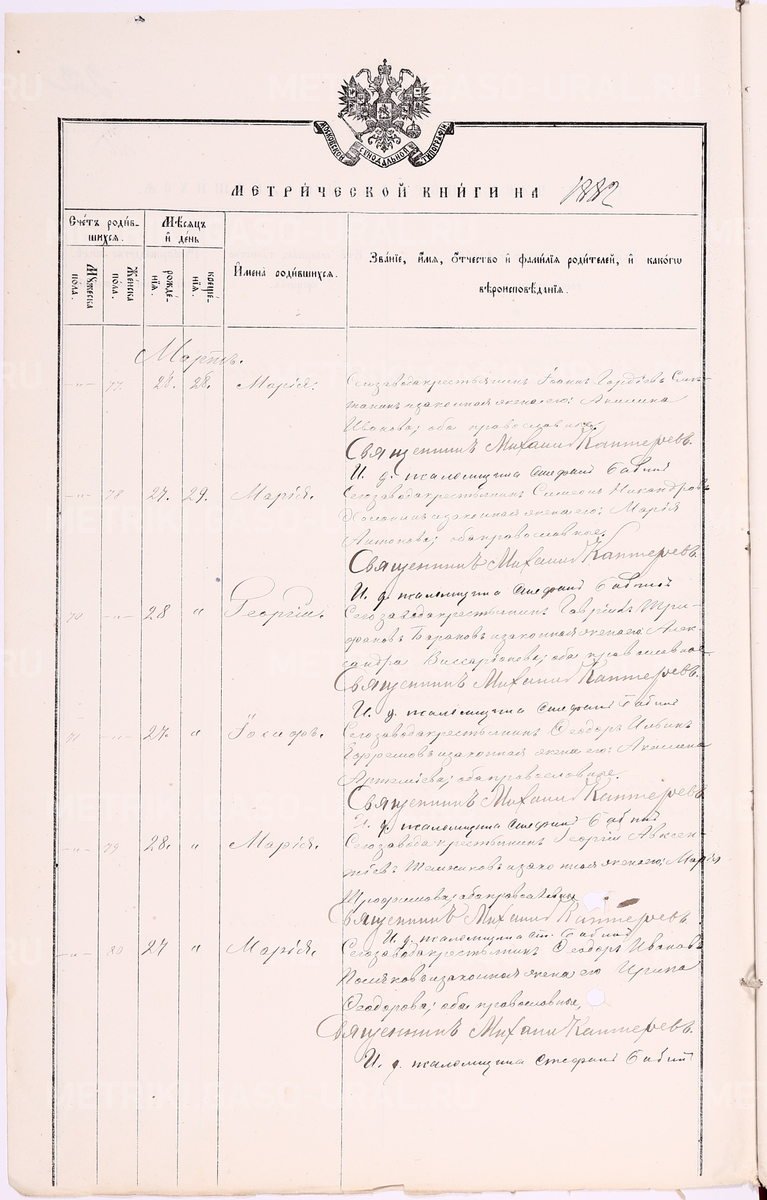 МОСКОВСКОЙ СѴНОДАЛЬНОЙ ТИПОГРАФІИ
МЕТРИ́ЧЕСКОЙ КНИ́ГИ НА 1882
Сче́тъ роди́в-
шихся.
Мѣ́сяцъ
и҆ де́нь
И҆мена̀ роди́вшихся.
Зва́ніе, и҆́мя, ѻ҆́тчество и҆ фами́лїя роди́телей, и҆ како́гѡ
вѣроисповѣ́данїя.
Мꙋ́жеска
по́ла.
Же́нска
по́ла.
рожде́-
нїя.
креще́-
нїя.
Мартъ.
-"- 77 28. Марія. Сегозавода крестьянинъ Іоаннъ Гордіевъ
и законная жена его: Акилина
Иванова; оба православные.
Священникъ Михаилъ Каптеревъ.
И. д. псаломщика Стефанъ Бабинъ
-"- 78 27. 29. Марія. Сегозавода крестьянинъ Симеонъ Никандровъ
и законная жена его: Марія
Антонова; оба православные.
Священникъ Михаилъ Каптеревъ.
И. д. псаломщика Стефанъ Бабинъ
70 -"- 28 " Георгій. Сегозавода крестьянинъ Гавріилъ Три-
фановъ Барановъ и законная жена его: Алек-
сандра Виссаріонова; оба православные
Священникъ Михаилъ Каптеревъ.
И. д. псаломщика Стефанъ Бабинъ
71 -"- 27. " Іосифъ. Сегозавода крестьянинъ Ѳеодоръ Ильинъ
Ефремовъ и законная жена его: Акилина
Артеміева; оба православные.
Священникъ Михаилъ Каптеревъ
И. д. псаломщика Стефанъ Бабинъ
-"- 79 28. " Марія. Сегозавода крестьянинъ Георгій Авксен-
тіевъ и законная жена его: Марія
Трофимова; оба православные
Священникъ Михаилъ Каптеревъ
И. д. псаломщика Ст. Бабинъ
-"- 80 27 " Марія. Сегозавода крестьянинъ Ѳеодоръ Ивановъ
Поляковъ и законная жена его Ирина
Ѳеодорова; оба православные,
Священникъ Михаилъ Каптеревъ.
И. д. псаломщика Стефанъ Бабинъ